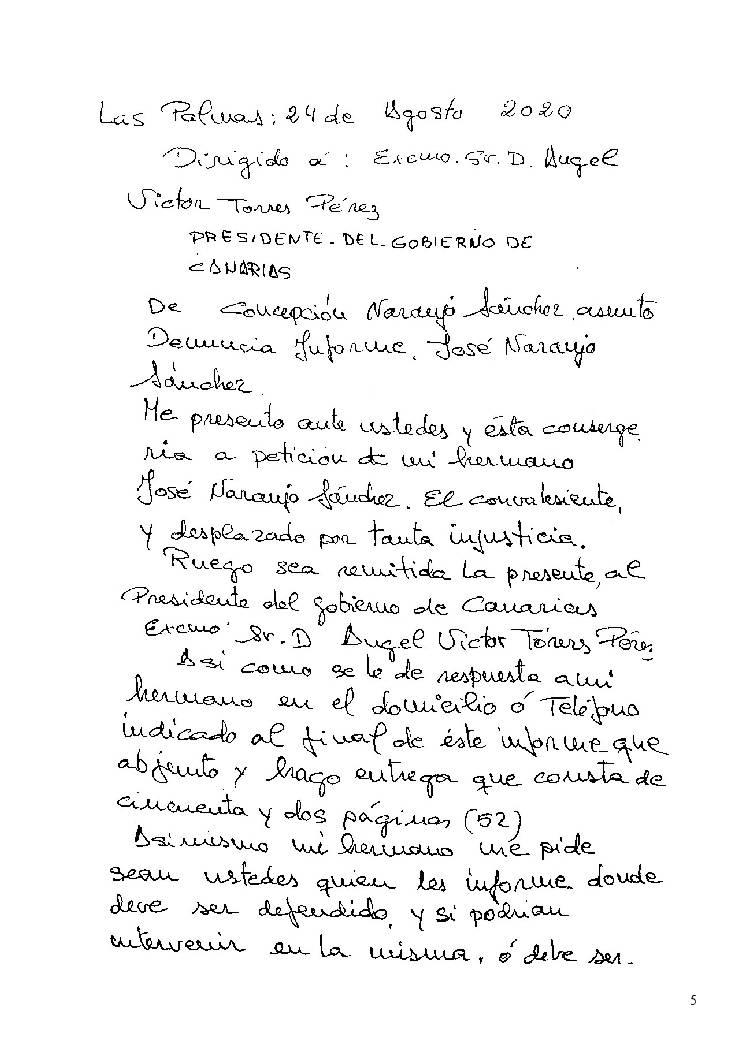 Las Palmas: 24 de Agosto 2020
Dirigido a: Excmo. Sr. D. Angel
Victor Torres Pérez
PRESIDENTE. DEL. GOBIERNO DE
CANARIAS
De Concepción Naranjo Sánchez, asunto
Denuncia Informe. José Naranjo
Sánchez
Me presento ante ustedes y ésta conserge
ria a petición de mi hermano
José Naranjo Sánchez. El convalesiente,
y desplazado por tanta injusticia.
Ruego sea remitida La presente, al
Presidente del gobierno de Canarias
Excmo Sr. D Angel Victor Torres Pérez
Asi como se le de respuesta a mi
hermano en el domicilio ó Teléfono
indicado al final de éste informe que
abjunto y hago entrega que consta de
cincuenta y dos páginas (52)
Asimismo mi hermano me pide
sean ustedes quien les informe donde
deve ser defendido, y si podrian
intervenir en la misma, ó debe ser.
5